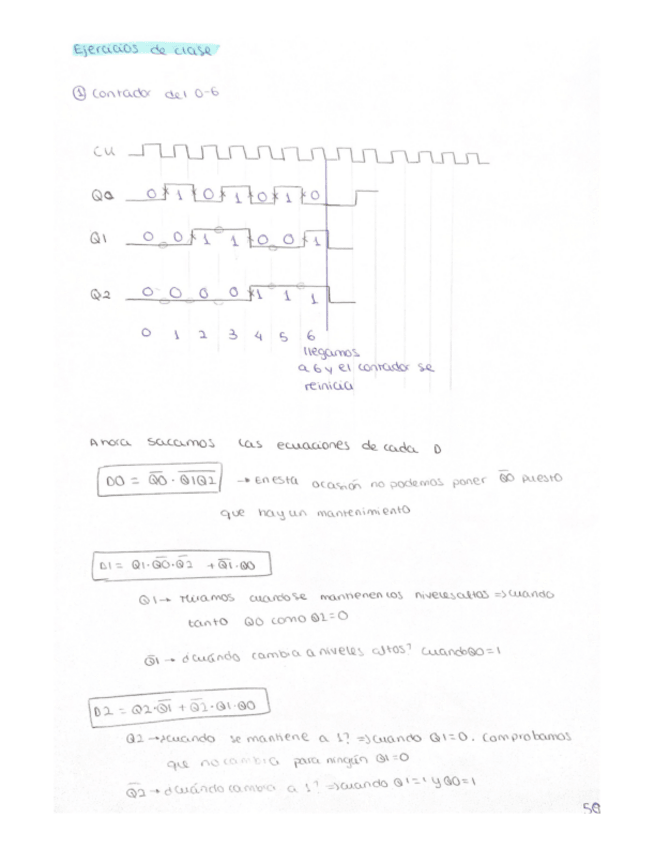 Ejercicios de clase
① Contador del 0-6
CLK
Q0 0 1 0 1 0 1 0
Q1 0 0 1 1 0 0 1
Q2 0 0 0 0 1 1 1
0 1 2 3 4 5 6
llegamos
a 6 y el contador se
reinicia
Ahora sacamos las ecuaciones de cada D
D0 = Q̅0̅ · Q̅1̅Q̅2̅ → En esta ocasión no podemos poner Q̅0̅ puesto
que hay un mantenimiento
D1 = Q1·Q̅0̅·Q̅2̅ + Q̅1̅·Q0
Q1 → Miramos cuando se mantienen los niveles altos => cuando
tanto Q0 como Q2=0
Q̅1̅ → ¿cuándo cambia a niveles altos? cuando Q0=1
D2 = Q2·Q̅1̅ + Q̅2̅·Q1·Q0
Q2 → ¿cuando se mantiene a 1? => cuando Q1=0. Comprobamos
que no cambia para ningún Q1=0
Q̅2̅ → ¿cuándo cambia a 1? => cuando Q1=1 y Q0=1
50